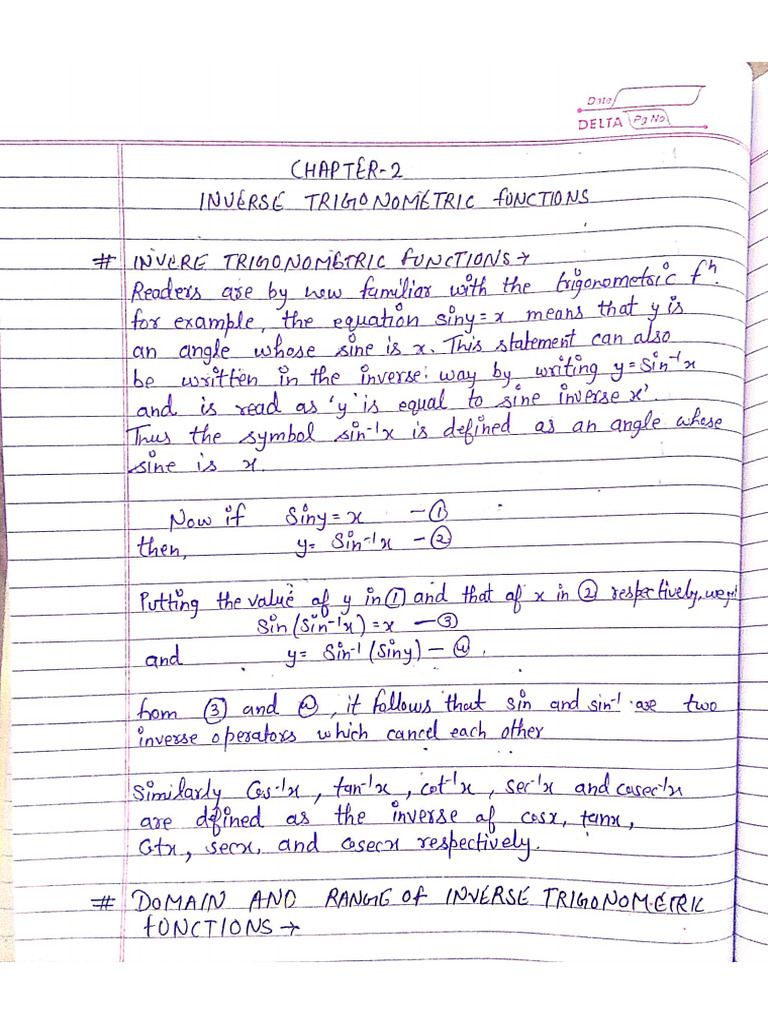 Date
DELTA Pg No
CHAPTER-2
INVERSE TRIGONOMETRIC FUNCTIONS
# INVERE TRIGONOMETRIC FUNCTIONS→
Readers are by now familiar with the trigonometric fⁿ.
for example, the equation siny = x means that y is
an angle whose sine is x. This statement can also
be written in the inverse way by writing y = Sin⁻¹x
and is read as 'y' is equal to sine inverse x'.
Thus the symbol sin⁻¹x is defined as an angle whose
sine is x.
Now if Siny = x —①
then, y = Sin⁻¹x —②
Putting the value of y in ① and that of x in ② respectively, we get
Sin(Sin⁻¹x) = x —③
and y = Sin⁻¹(Siny) —④.
from ③ and ④, it follows that sin and sin⁻¹ are two
inverse operators which cancel each other
Similarly Cos⁻¹x, tan⁻¹x, cot⁻¹x, sec⁻¹x and cosec⁻¹x
are defined as the inverse of cosx, tanx,
Cotx, secx, and cosecx respectively.
# DOMAIN AND RANGE OF INVERSE TRIGONOMETRIC
FUNCTIONS→